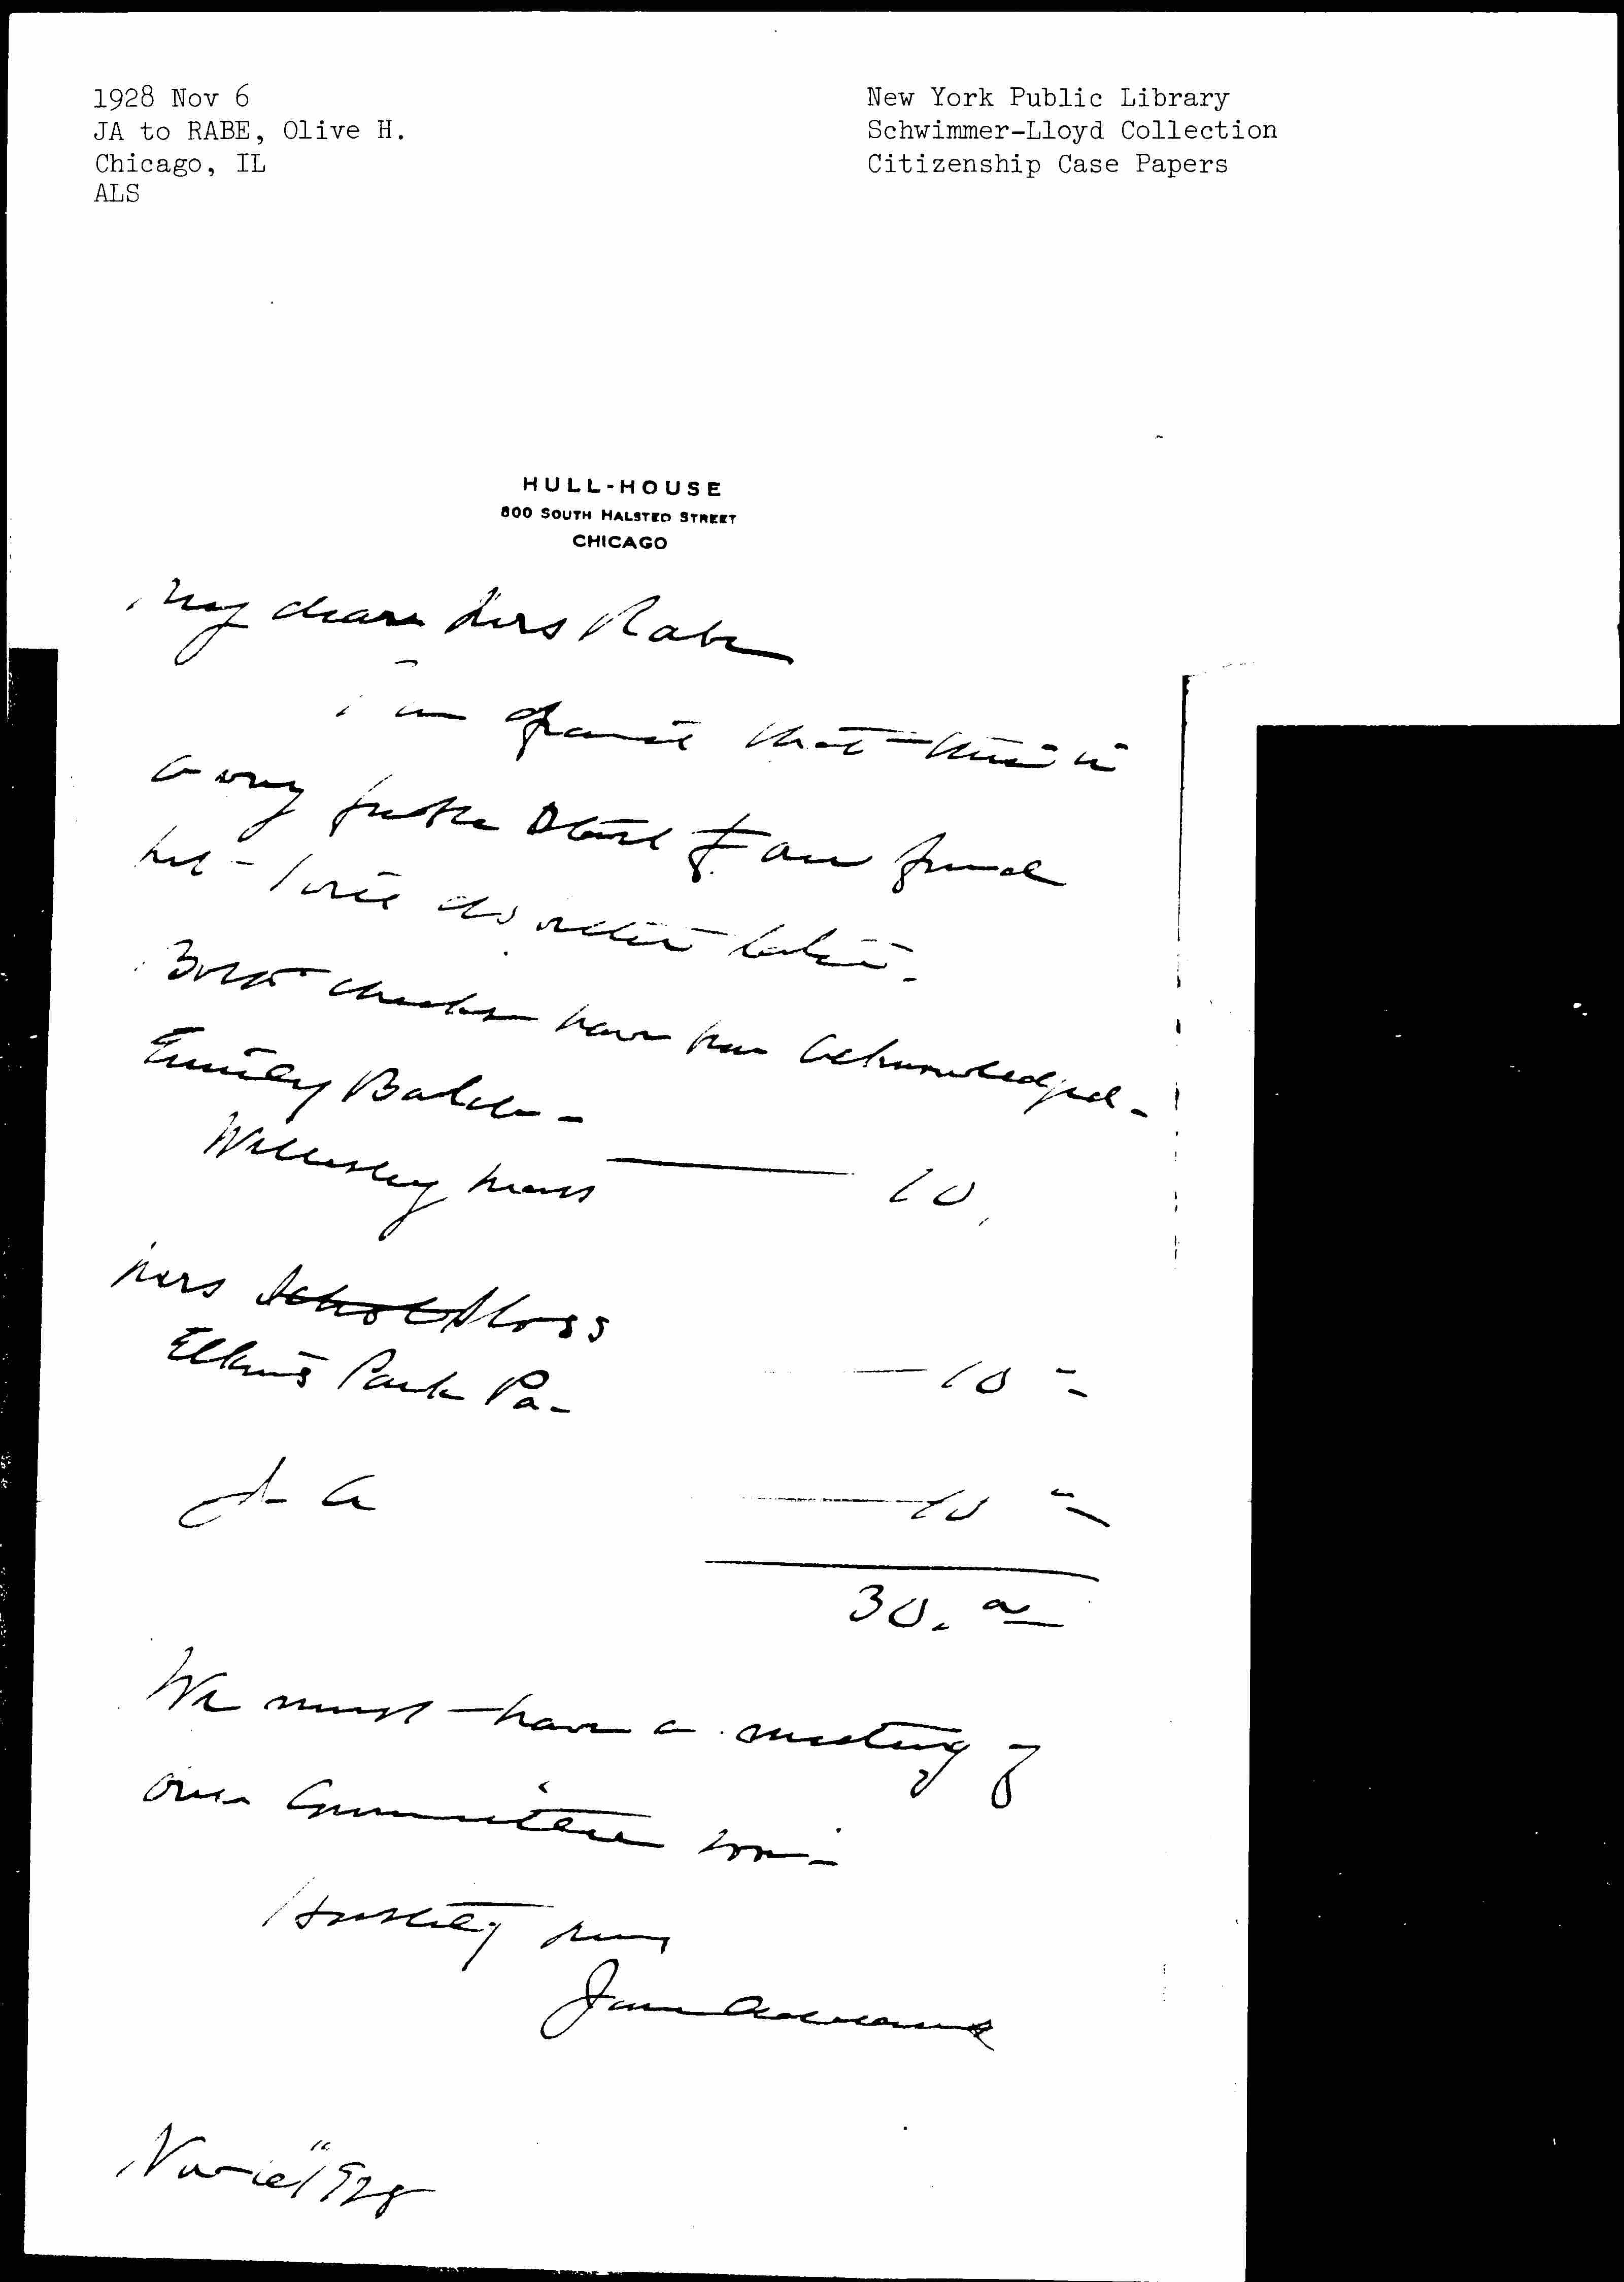 1928 Nov 6
JA to RABE, Olive H.
Chicago, IL
ALS
New York Public Library
Schwimmer-Lloyd Collection
Citizenship Case Papers
HULL-HOUSE
800 SOUTH HALSTED STREET
CHICAGO
My dear Mrs Rabe
I am afraid that this is
a very feeble start of our fund
but I will do better later.
Both checks have been acknowledged.
Emily Balch -
Wellesley Mass — 10.
Mrs Schol Sloss
Elkins Park Pa. — 10 -
J A — 10 -
30. 00
We must have a meeting of
our Committee soon -
Hastily yours
Jane Addams
Nov 6" 1928